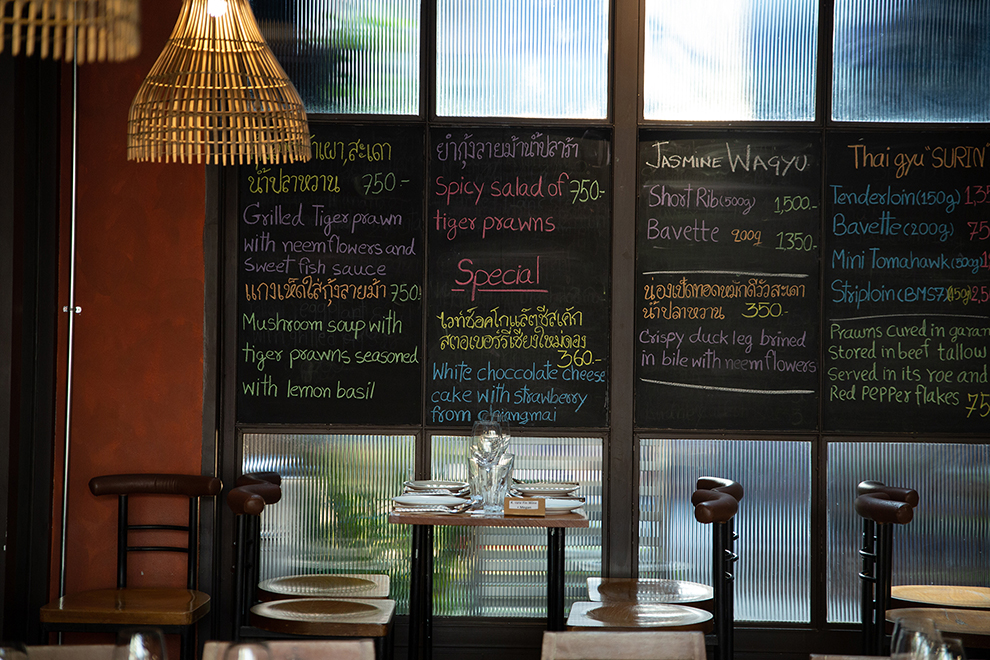 เผา,สะเดา
น้ำปลาหวาน 750.-
Grilled Tiger prawn
with neem flowers and
Sweet fish sauce
แกงเห็ดใส่กุ้งลายม้า 750.
Mushroom soup with
tiger prawns seasoned
with lemon basil
ยำกุ้งลายม้าน้ำปลาร้า
Spicy salad of 750.-
tiger prawns
Special
ไวท์ช็อคโกแลัตชีสเค้ก
สตอเบอร์รี่เชียงใหม่ดอง
360.-
White choccolate cheese
cake with strawberry
from chiangmai
JASMINE WAGYU
Short Rib (500g) 1,500.-
Bavette 200g 1350.-
น่องเป็ดทอดหมักดีวัวสะเดา
น้ำปลาหวาน 350.-
Crispy duck leg brined
in bile with neem flowers
Thai gyu "SURIN"
Tenderloin (150g)
Bavette (200g)
Mini Tomahawk
Striploin (BMS7)
Prawns cured in garam
Stored in beef tallow
served in its roe and
Red Pepper flakes